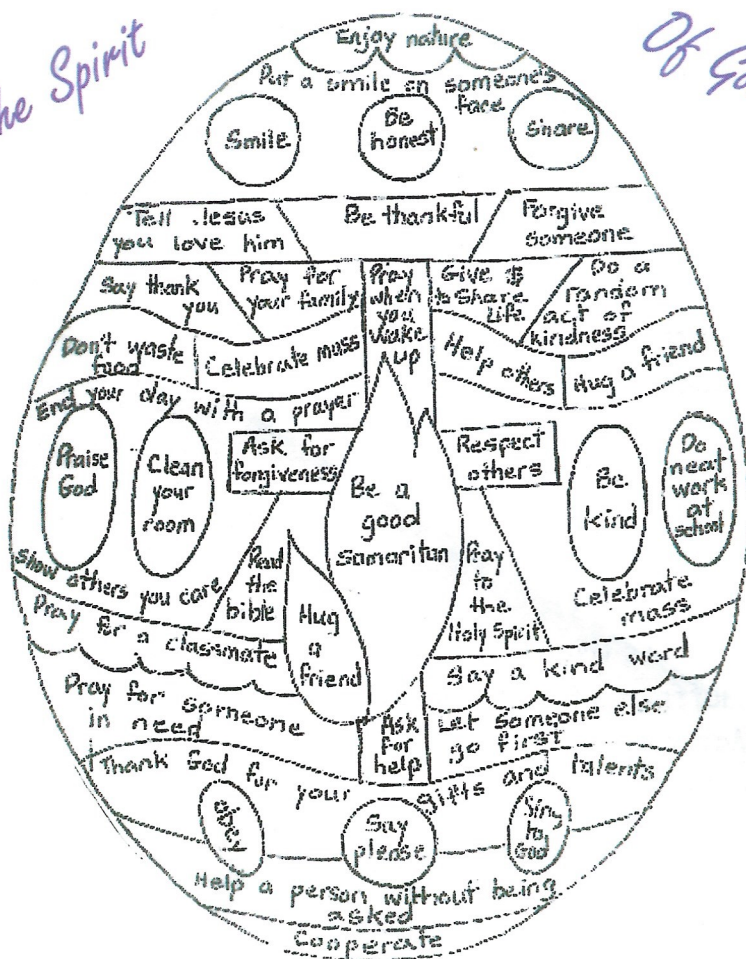 he Spirit
Of Go
Enjoy nature
Put a smile on someone's
face
Smile
Be
honest
Share
Tell Jesus
you love him
Be thankful
Forgive
someone
Say thank
you
Pray for
your family
Pray
when
you
wake
up
Give $
to Share
Life
Do a
random
act of
kindness
Don't waste
food
Celebrate mass
Help others
Hug a friend
End your day with a prayer
Praise
God
Clean
your
room
Ask for
forgiveness
Be a
good
samaritan
Respect
others
Be
kind
Do
neat
work
at
school
Show others you care
Read
the
bible
Hug
a
friend
Pray
to
the
Holy Spirit
Celebrate
mass
Pray for a classmate
Say a kind word
Pray for someone
in need
Ask
for
help
Let someone else
go first
Thank God for your gifts and talents
obey
Say
please
Sing
to
God
Help a person without being
asked
Cooperate